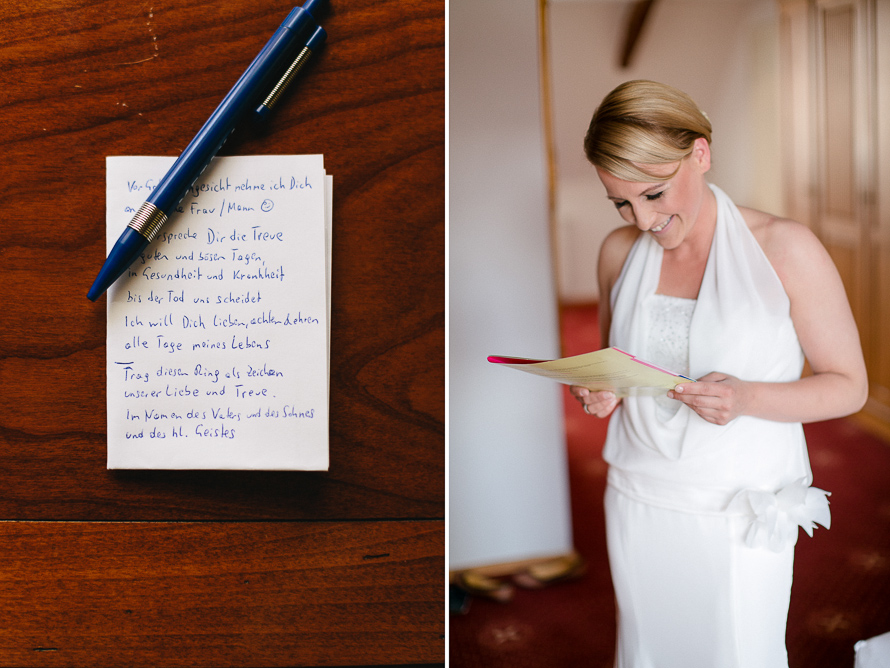 Vor gesicht nehme ich Dich
an Frau / Mann ☺
spreche Dir die Treue
guten und bösen Tagen,
in Gesundheit und Krankheit
bis der Tod uns scheidet
Ich will Dich lieben, achten & ehren
alle Tage meines Lebens
Trag diesen Ring als Zeichen
unserer Liebe und Treue.
Im Namen des Vaters und des Sohnes
und des hl. Geistes